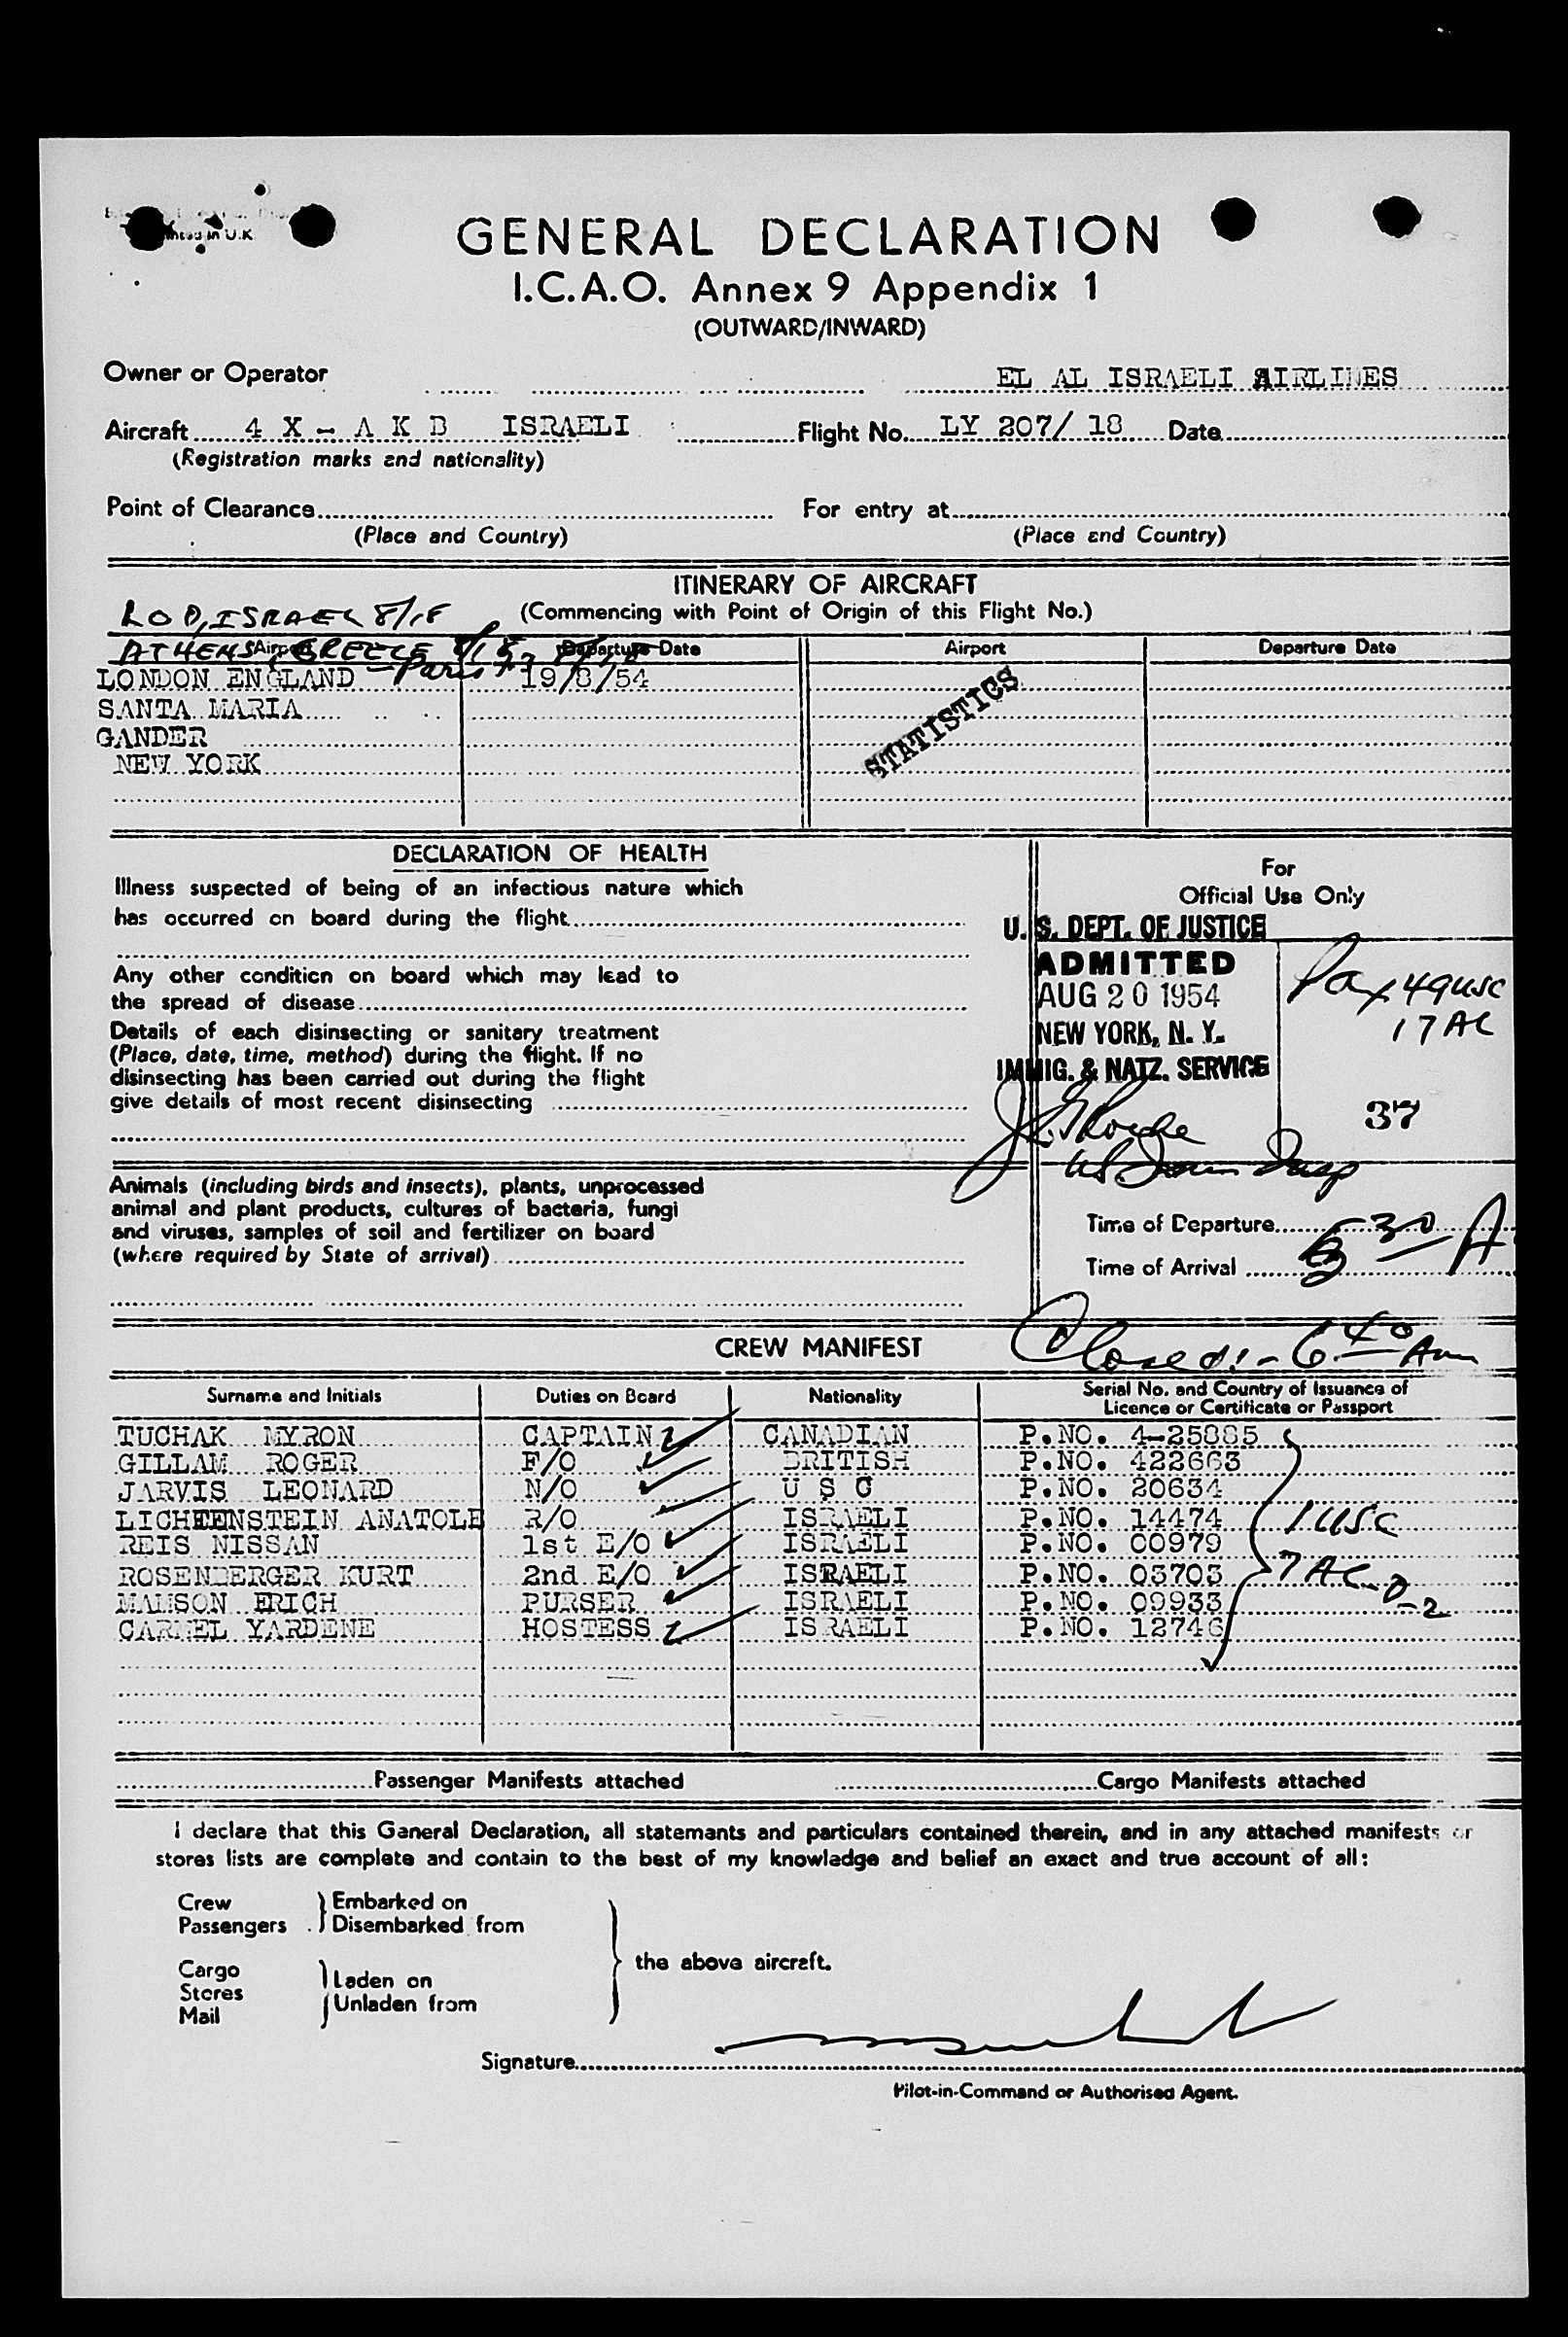 Printed in U.K.
GENERAL DECLARATION
I.C.A.O. Annex 9 Appendix 1
(OUTWARD/INWARD)
Owner or Operator EL AL ISRAELI AIRLINES
Aircraft 4 X - A K B ISRAELI Flight No. LY 207/ 18 Date
(Registration marks and nationality)
Point of Clearance For entry at
(Place and Country) (Place and Country)
ITINERARY OF AIRCRAFT
LOD, ISRAEL 8/18 (Commencing with Point of Origin of this Flight No.)
Airport Departure Date Airport Departure Date
ATHENS, GREECE
LONDON ENGLAND - Paris 19/8/54
SANTA MARIA
GANDER
NEW YORK
STATISTICS
DECLARATION OF HEALTH
Illness suspected of being of an infectious nature which
has occurred on board during the flight
Any other condition on board which may lead to
the spread of disease
Details of each disinsecting or sanitary treatment
(Place, date, time, method) during the flight. If no
disinsecting has been carried out during the flight
give details of most recent disinsecting
For
Official Use Only
U. S. DEPT. OF JUSTICE
ADMITTED
AUG 20 1954
NEW YORK, N. Y.
IMMIG. & NATZ. SERVICE
Pax 49 USC
17 AC
37
Animals (including birds and insects), plants, unprocessed
animal and plant products, cultures of bacteria, fungi
and viruses, samples of soil and fertilizer on board
(where required by State of arrival)
Time of Departure
Time of Arrival
530 A
Closed:- 6 40 Am
CREW MANIFEST
Surname and Initials Duties on Board Nationality Serial No. and Country of Issuance of
Licence or Certificate or Passport
TUCHAK MYRON CAPTAIN CANADIAN P.NO. 4-25885
GILLAM ROGER F/O BRITISH P.NO. 422663
JARVIS LEONARD N/O U S C P.NO. 20634
LICHTENSTEIN ANATOLE R/O ISRAELI P.NO. 14474 1 USC
REIS NISSAN 1st E/O ISRAELI P.NO. 00979
ROSENBERGER KURT 2nd E/O ISRAELI P.NO. 03703 7 AC
MAMSON ERICH PURSER ISRAELI P.NO. 09933 D-2
CARMEL YARDENE HOSTESS ISRAELI P.NO. 12746
Passenger Manifests attached Cargo Manifests attached
I declare that this General Declaration, all statemants and particulars contained therein, and in any attached manifests or
stores lists are complete and contain to the best of my knowledge and belief an exact and true account of all:
Crew Embarked on
Passengers Disembarked from
the above aircraft.
Cargo Laden on
Stores Unladen from
Mail
Signature
Pilot-in-Command or Authorised Agent.